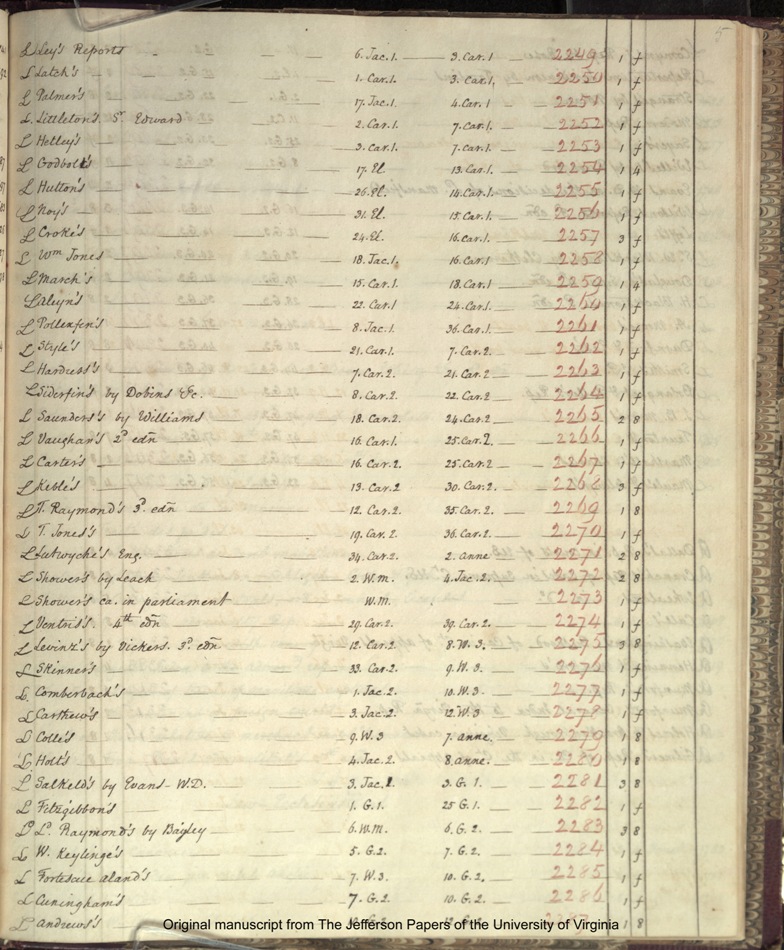 5
L Ley's Reports 6. Jac. 1. 3. Car. 1 2249 1 f
L Latch's 1. Car. 1. 3. Car. 1. 2250 1 f
L Palmer's 17. Jac. 1. 4. Car. 1 2251 1 f
L. Littleton's. Sr. Edward 2. Car. 1. 7. Car. 1. 2252 1 f
L Hetley's 3. Car. 1. 7. Car. 1. 2253 1 f
L Godbolt's 17. El. 13. Car. 1. 2254 1 4
L Hutton's 26. El. 14. Car. 1. 2255 1 f
L Noy's 31. El. 15. Car. 1. 2256 1 f
L Croke's 24. El. 16. Car. 1. 2257 3 f
L Wm Jones 18. Jac. 1. 16. Car. 1. 2258 1 f
L March's 15. Car. 1. 18. Car. 1 2259 1 4
L Aleyn's 22. Car. 1 24. Car. 1. 2260 1 f
L Pollexfen's 8. Jac. 1. 36. Car. 1. 2261 1 f
L Style's 21. Car. 1. 7. Car. 2. 2262 1 f
L Hardress's 7. Car. 2. 21. Car. 2 2263 1 f
L Siderfin's by Dobins &c. 8. Car. 2. 22. Car. 2 2264 1 f
L Saunders's by Williams 18. Car. 2. 24. Car. 2. 2265 2 8
L Vaughan's 2d edn 16. Car. 1. 25. Car. 2. 2266 1 f
L Carter's 16. Car. 2. 25. Car. 2 2267 1 f
L Keble's 13. Car. 2 30. Car. 2. 2268 3 f
L T. Raymond's 3d. edn 12. Car. 2. 35. Car. 2. 2269 1 8
L T. Jones's 19. Car. 2. 36. Car. 2. 2270 1 f
L Lutwyche's Eng. 34. Car. 2. 2. Anne 2271 2 8
L Shower's by Leach 2. W.M. 4. Jac. 2. 2272 2 8
L Shower's ca. in parliament W.M. 2273 1 f
L Ventris's. 4th edn 29. Car. 2. 39. Car. 2. 2274 1 f
L Levinz's by Vickers. 3d. edn 12. Car. 2. 8. W. 3. 2275 3 8
L Skinner's 33. Car. 2. 9. W. 3. 2276 1 f
L. Comberbach's 1. Jac. 2. 10. W. 3. 2277 1 f
L Carthew's 3. Jac. 2. 12. W. 3 2278 1 f
L Colle's 9. W. 3 7. Anne. 2279 1 8
L. Holt's 4. Jac. 2. 8. Anne. 2280 1 8
L Salkeld's by Evans W.D. 3. Jac. 2. 3. G. 1. 2281 3 8
L Fitzgibbon's 1. G. 1. 25 G. 1. 2282 1 f
L Ld. Raymond's by Bayley 6. W.M. 6. G. 2. 2283 3 8
L W. Keylinge's 5. G. 2. 7. G. 2. 2284 1 f
L Fortescue Aland's 7. W. 3. 10. G. 2. 2285 1 f
L Cuningham's 7. G. 2. 10. G. 2. 2286 1 f
L Andrews's 1 8
Original manuscript from The Jefferson Papers of the University of Virginia